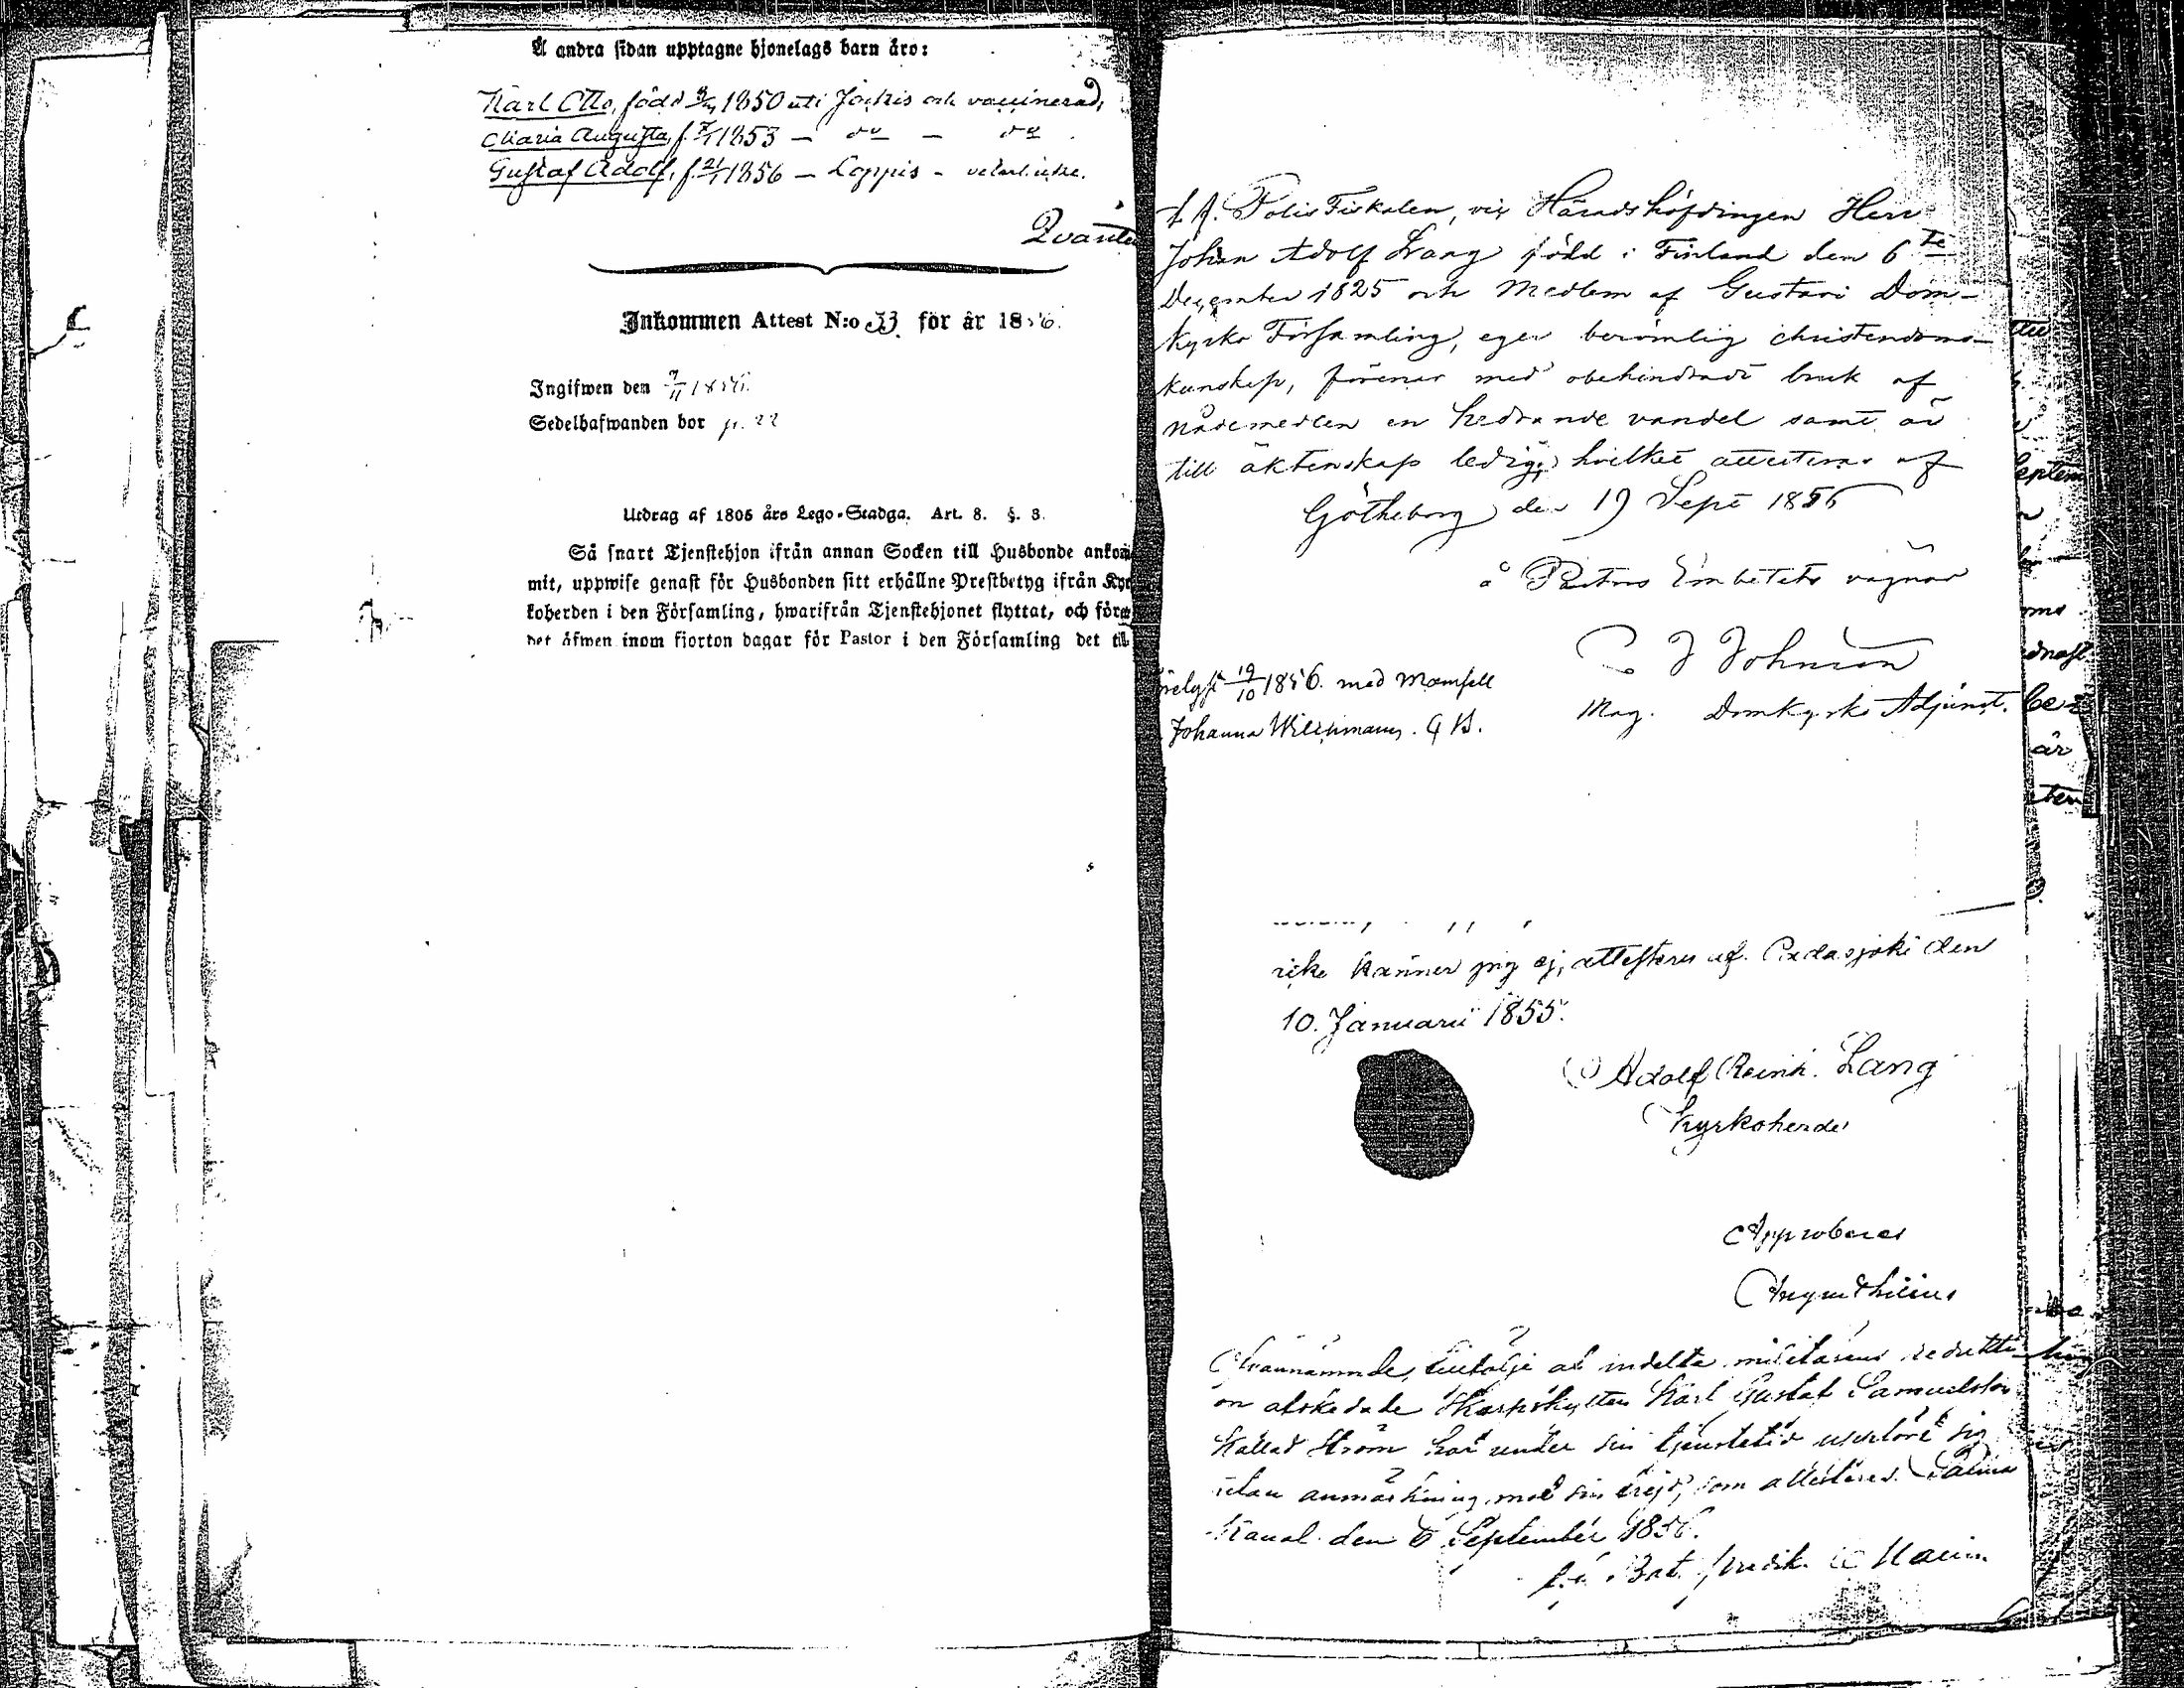 Å andra sidan upptagne hjonelags barn äro:
Karl Otto, född 1850 uti Jockis och vaccinerad,
Maria Augusta, f. 7/1 1853 — do — do
Gustaf Adolf, f. 21/1 1856 — Loppis -
Inkommen Attest N:o 33 för år 1856.
Ingifwen den 7/11 1856.
Sedelhafwanden bor p. 22
Utdrag af 1805 års Lego-Stadga. Art. 8. §. 3.
Så snart Tjenstehjon ifrån annan Socken till Husbonde ankom
mit, uppwise genast för Husbonden sitt erhållne Prestbetyg ifrån Kyr
koherden i den Församling, hwarifrån Tjenstehjonet flyttat, och före
det äfwen inom fjorton dagar för Pastor i den Församling det til
t. f. Polis Fiskalen, vice Häradshöfdingen Herr
Johan Adolf Lang född i Finland den 6te
December 1825 och Medlem af Gustavi Dom-
kyrko Församling, eger berömlig christendoms-
kunskap, förenar med obehindradt bruk af
nådemedlen en hedrande vandel samt är
till äktenskap ledig; hvilket attesteras af
Götheborg den 19 Sept 1856
å Pastors Embetets vägnar
C J Johnson
Mag. Domkyrko Adjunct.
19/10 1856. med Mamsell
Johanna
rike känner jag ej, attesteras af. Padasjoki den
10. Januarii 1855.
Adolf Reinh. Lang
Kyrkoherde
Approberas
Ofvannämnde, till följe af indelta militärens redukti
on afskedade Skarpskytten Karl Gustaf Samuelsson
kallad Ström har under sin tjenstetid uppfört sig
utan anmärkning mot sin frejd, som attesteras. Saima
Kanal den 6 September 1856.
Bat. predik.